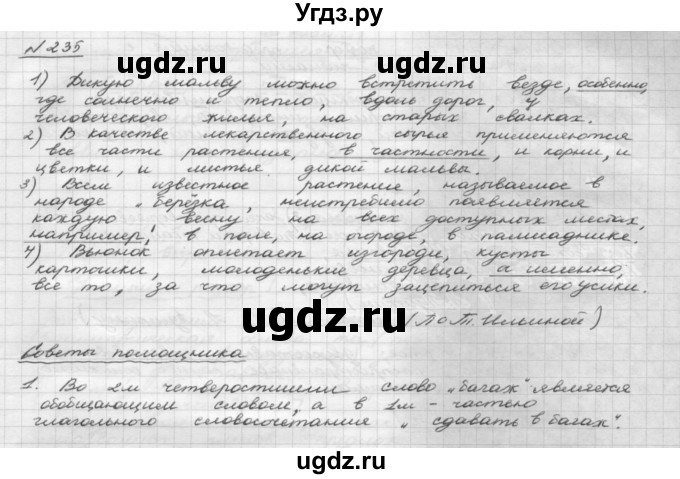 Угдз.ру
№235
1) Дикую мальву можно встретить везде, особенно,
где солнечно и тепло, вдоль дорог, у
человеческого жилья, на старых свалках.
2) В качестве лекарственного сырья применяются
все части растения, в частности, и корни, и
цветки, и листья дикой мальвы.
3) Всем известное растение, называемое в
народе „берёзка, неистребимо появляется
каждую весну на всех доступных местах,
например, в поле, на огороде, в палисаднике.
4) Вьюнок оплетает изгороди, кусты
картошки, молоденькие деревца, а именно,
всё то, за что могут зацепиться его усики.
(По Т. Ильиной)
Советы помощника
1. Во 2м четверостишии слово „багаж" является
обобщающим словом, а в 1м - частью
глагольного словосочетания „сдавать в багаж".
ugdz.ru ugdz.ru
ugdz.ru ugdz.ru
ugdz.ru ugdz.ru
ugdz.ru ugdz.ru
ugdz.ru ugdz.ru
Угдз.ру